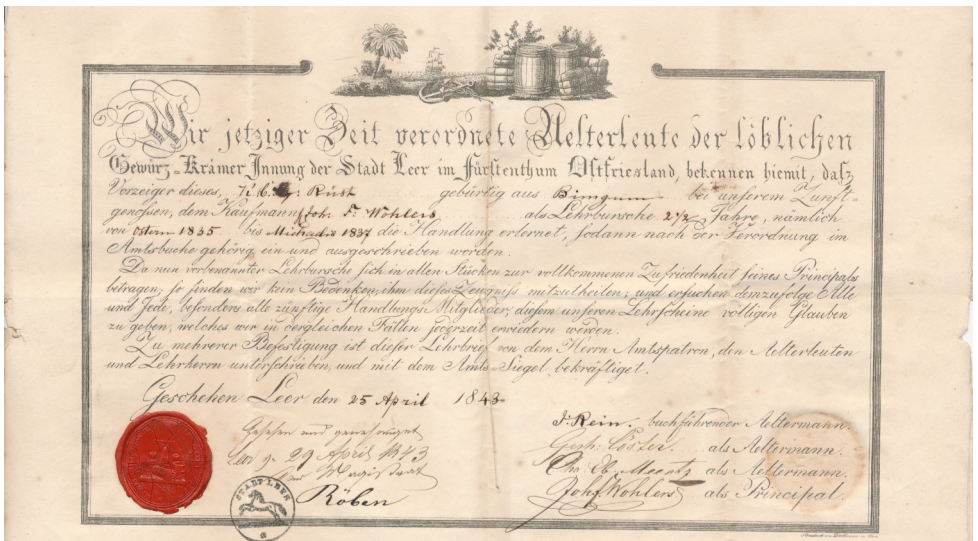 Wir jetziger Zeit verordnete Aelterleute der löblichen
Gewürz-Krämer Innung der Stadt Leer im Fürstenthum Ostfriesland, bekennen hiemit, daſz
Vorzeiger dieses, gebürtig aus Bingum bei unserem Zunft-
genossen, dem Kaufmann Joh. F. Wohlers als Lehrbursche 2 1/2 Jahre, nämlich
von Ostern 1835 bis Michaelis 1837 die Handlung erlernet, sodann nach der Verordnung im
Amtsbuche gehörig ein und ausgeschrieben worden.
Da nun vorbenannter Lehrbursche sich in allen Stücken zur vollkommenen Zufriedenheit seines Principals
betragen; so finden wir kein Bedenken, ihm dieses Zeugniss mitzutheilen; und ersuchen demzufolge Alle
und Jede, besonders alle zünftige Handlungs-Mitglieder, diesem unseren Lehrscheine völligen Glauben
zu geben, welches wir in dergleichen Fällen jederzeit erwiedern werden.
Zu mehrerer Befestigung ist dieser Lehrbrief von dem Herrn Amtspatron, den Aelterleuten
und Lehrherrn unterschrieben, und mit dem Amts-Siegel bekräftiget.
Geschehen Leer den 25 April 1843
J. Rein. buchführender Aeltermann.
als Aeltermann.
als Aeltermann.
Joh. F. Wohlers als Principal.
Gesehen und genehmiget
Leer d. 29 April 1843
Der Magistrat
Röben
STADT LEER